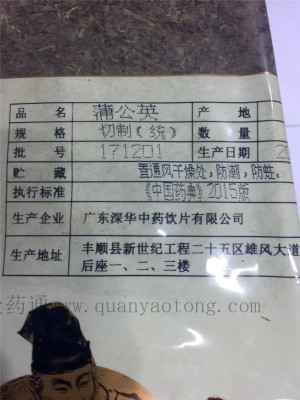 品 名 蒲公英 产 地
规 格 切制(统) 数 量
批 号 171201 生产日期 2
贮 藏 置通风干燥处,防潮,防蛀.
执行标准 《中国药典》2015版
生产企业 广东深华中药饮片有限公司
生产地址 丰顺县新世纪工程二十五区雄风大道
后座一、二、三楼
药通 www.quanyaotong.com